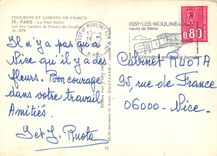 COULEURS ET LUMIERE DE FRANCE
75 - PARIS - La Tour Eiffel
vue des Jardins du Palais de Chaillot
Il n'y a pas qu'à
Nice qu'il y a des
fleurs. Bon courage
dans votre travail.
Amitiés.
J et J. Ruota
ISSY-LES-MOULINEAUX
Hauts de Seine
0.80
Cabinet RUOTA
95, rue de France
06000 - Nice